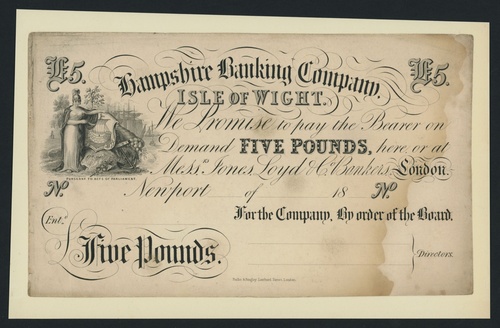 £5. Hampshire Banking Company, £5.
ISLE OF WIGHT.
We Promise to pay the Bearer on
Demand FIVE POUNDS, here or at
Mess.rs Jones, Loyd & Co. Bankers, London.
No Newport of 18 No
For the Company, By order of the Board.
Ent.d
Five Pounds.
Directors.
PURSUANT TO ACT OF PARLIAMENT